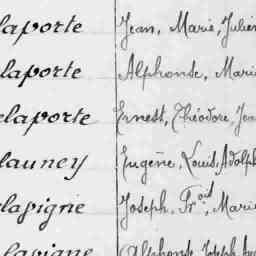 laporte Jean, Marie, Julien
laporte Alphonse, Marie
elaporte Ernest, Théodore, Jea
launey Eugène, Louis, Adolph
lavigne Joseph, Frçois, Marie
lavigne Alphonse, Joseph, Au